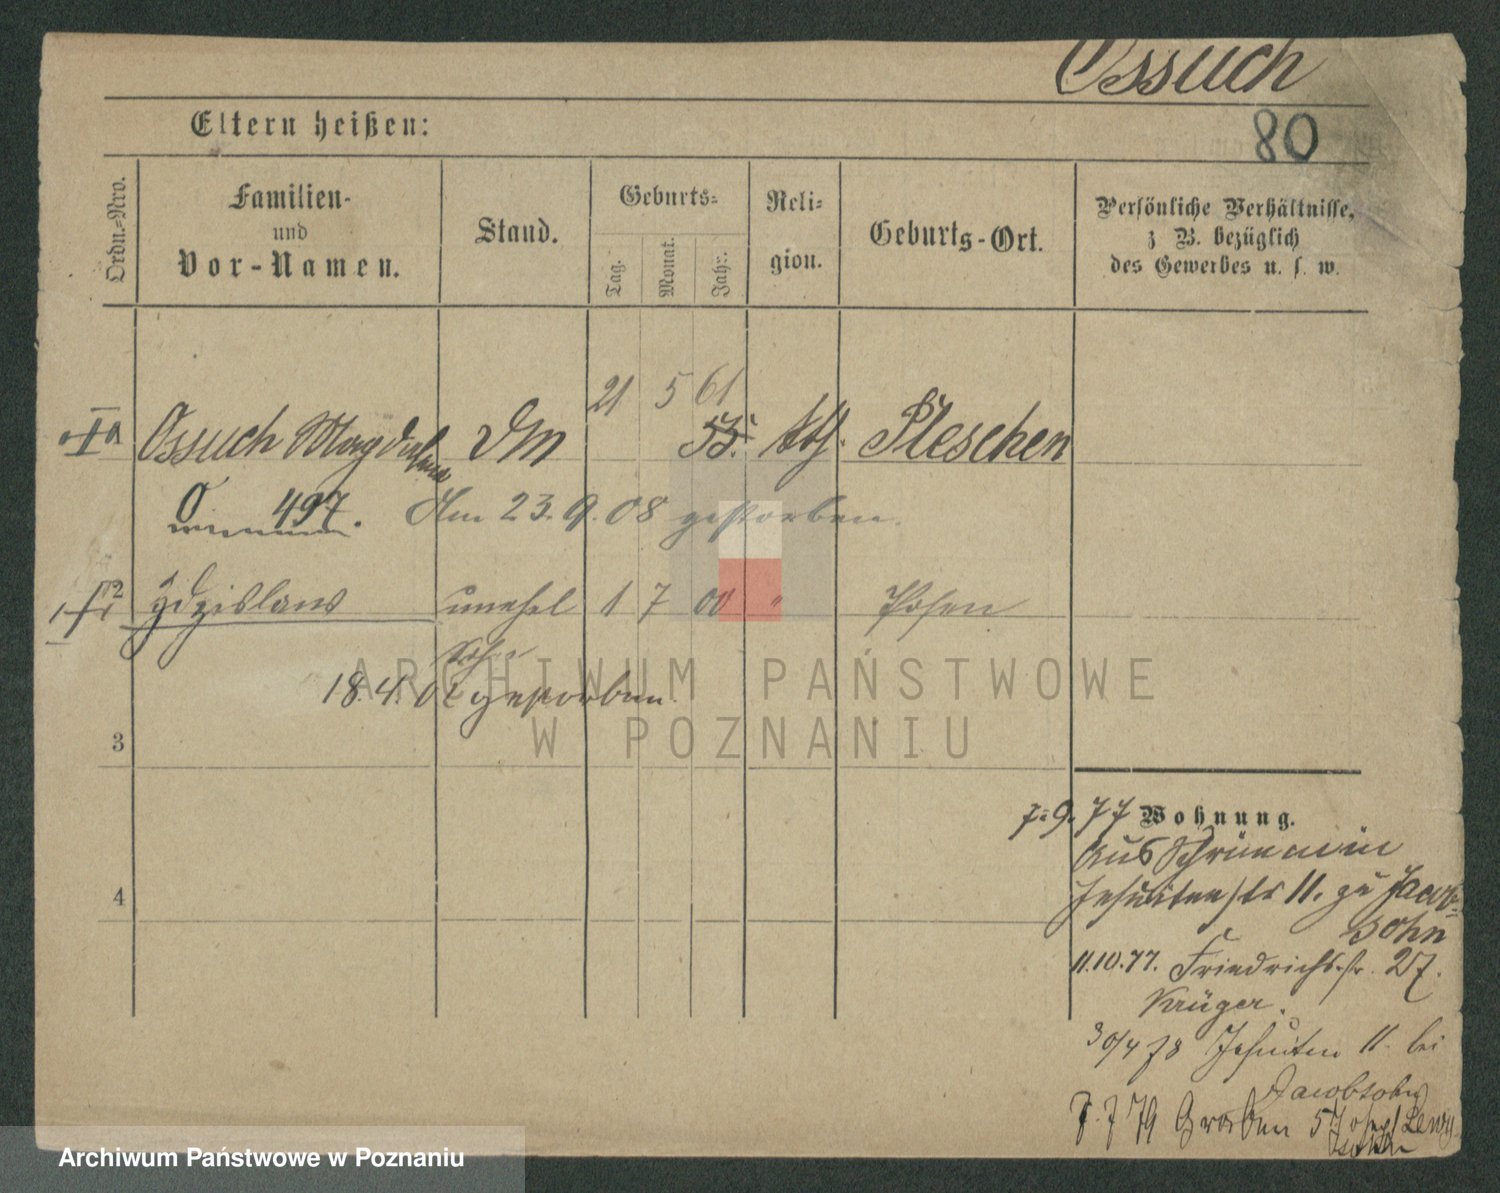 Ossuch
80
Eltern heißen:
Ordn.-Nro.
Familien-
und
Vor-Namen.
Stand.
Geburts-
Tag.
Monat.
Jahr.
Reli-
gion.
Geburts-Ort.
Persönliche Verhältnisse,
z B. bezüglich
des Gewerbes u. s. w.
21 5 61
Ossuch Magdalena DM 55. kth. Pleschen
O 497. Am 23.9.08 gestorben.
Zdzislaus unehel 1 7 00 " Posen
Sohn
18.4.01 gestorben.
ARCHIWUM PAŃSTWOWE
W POZNANIU
3
4
7.9.77 Wohnung.
aus Schrimm in
Jesuitenstr 11. zu Jacob-
sohn
11.10.77. Friedrichstr. 27.
Krüger.
30/4 78 Jesuiten 11. bei
Jacobsohn
7.7 79 Graben 5 Josef Lewy
Archiwum Państwowe w Poznaniu